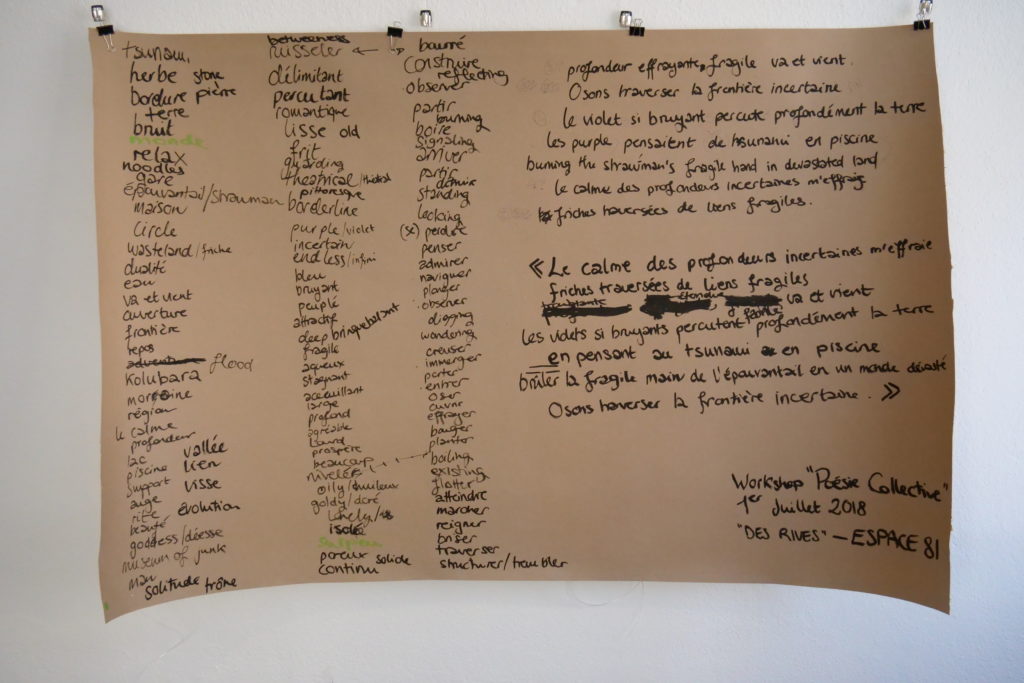 tsunami
herbe stone
bordure pierre
terre
bruit
monde
relax
noodles
gare
épouvantail/strawman
maison
circle
wasteland/friche
dualité
eau
va et vient
ouverture
frontière
repos
flood
Kolubara
région
le calme
profondeur
lac vallée
piscine lien
support visse
auge
rite évolution
beauté
goddess/déesse
museum of junk
man
solitude trône
betweeness
ruisseler
délimitant
percutant
romantique
lisse old
frit
guarding
theatrical/théâtral
pittoresque
borderline
purple/violet
incertain
endless/infini
bleu
bruyant
peuplé
attractif
deep brinquebalant
fragile
aqueux
stagnant
accueillant
large
profond
agréable
lourd
prospère
beaucoup
nivelée
oily/huileux
goldy/doré
lonely/
isolé
poreux solide
continu
bourré
construire
reflecting
observer
partir
burning
boire
signaling
arriver
partir
démolir
standing
locking
(se) perdre
penser
admirer
naviguer
plonger
observer
digging
wondering
creuser
immerger
porter
entrer
oser
ouvrir
effrayer
bouger
planter
boiling
existing
flotter
atteindre
marcher
reigner
briser
traverser
structurer/troubler
profondeur effrayante, fragile va et vient.
Osons traverser la frontière incertaine
le violet si bruyant percute profondément la terre
les purple pensaient de tsunami en piscine
burning the strawman's fragile hand in devastated land
le calme des profondeurs incertaines m'effraie
friches traversées de liens fragiles.
« Le calme des profondeurs incertaines m'effraie
friches traversées de liens fragiles
va et vient
les violets si bruyants percutent profondément la terre
en pensant au tsunami en piscine
brûler la fragile main de l'épouvantail en un monde dévasté
Osons traverser la frontière incertaine. »
Workshop "Poésie Collective"
1er Juillet 2018
"DES RIVES" – ESPACE 81